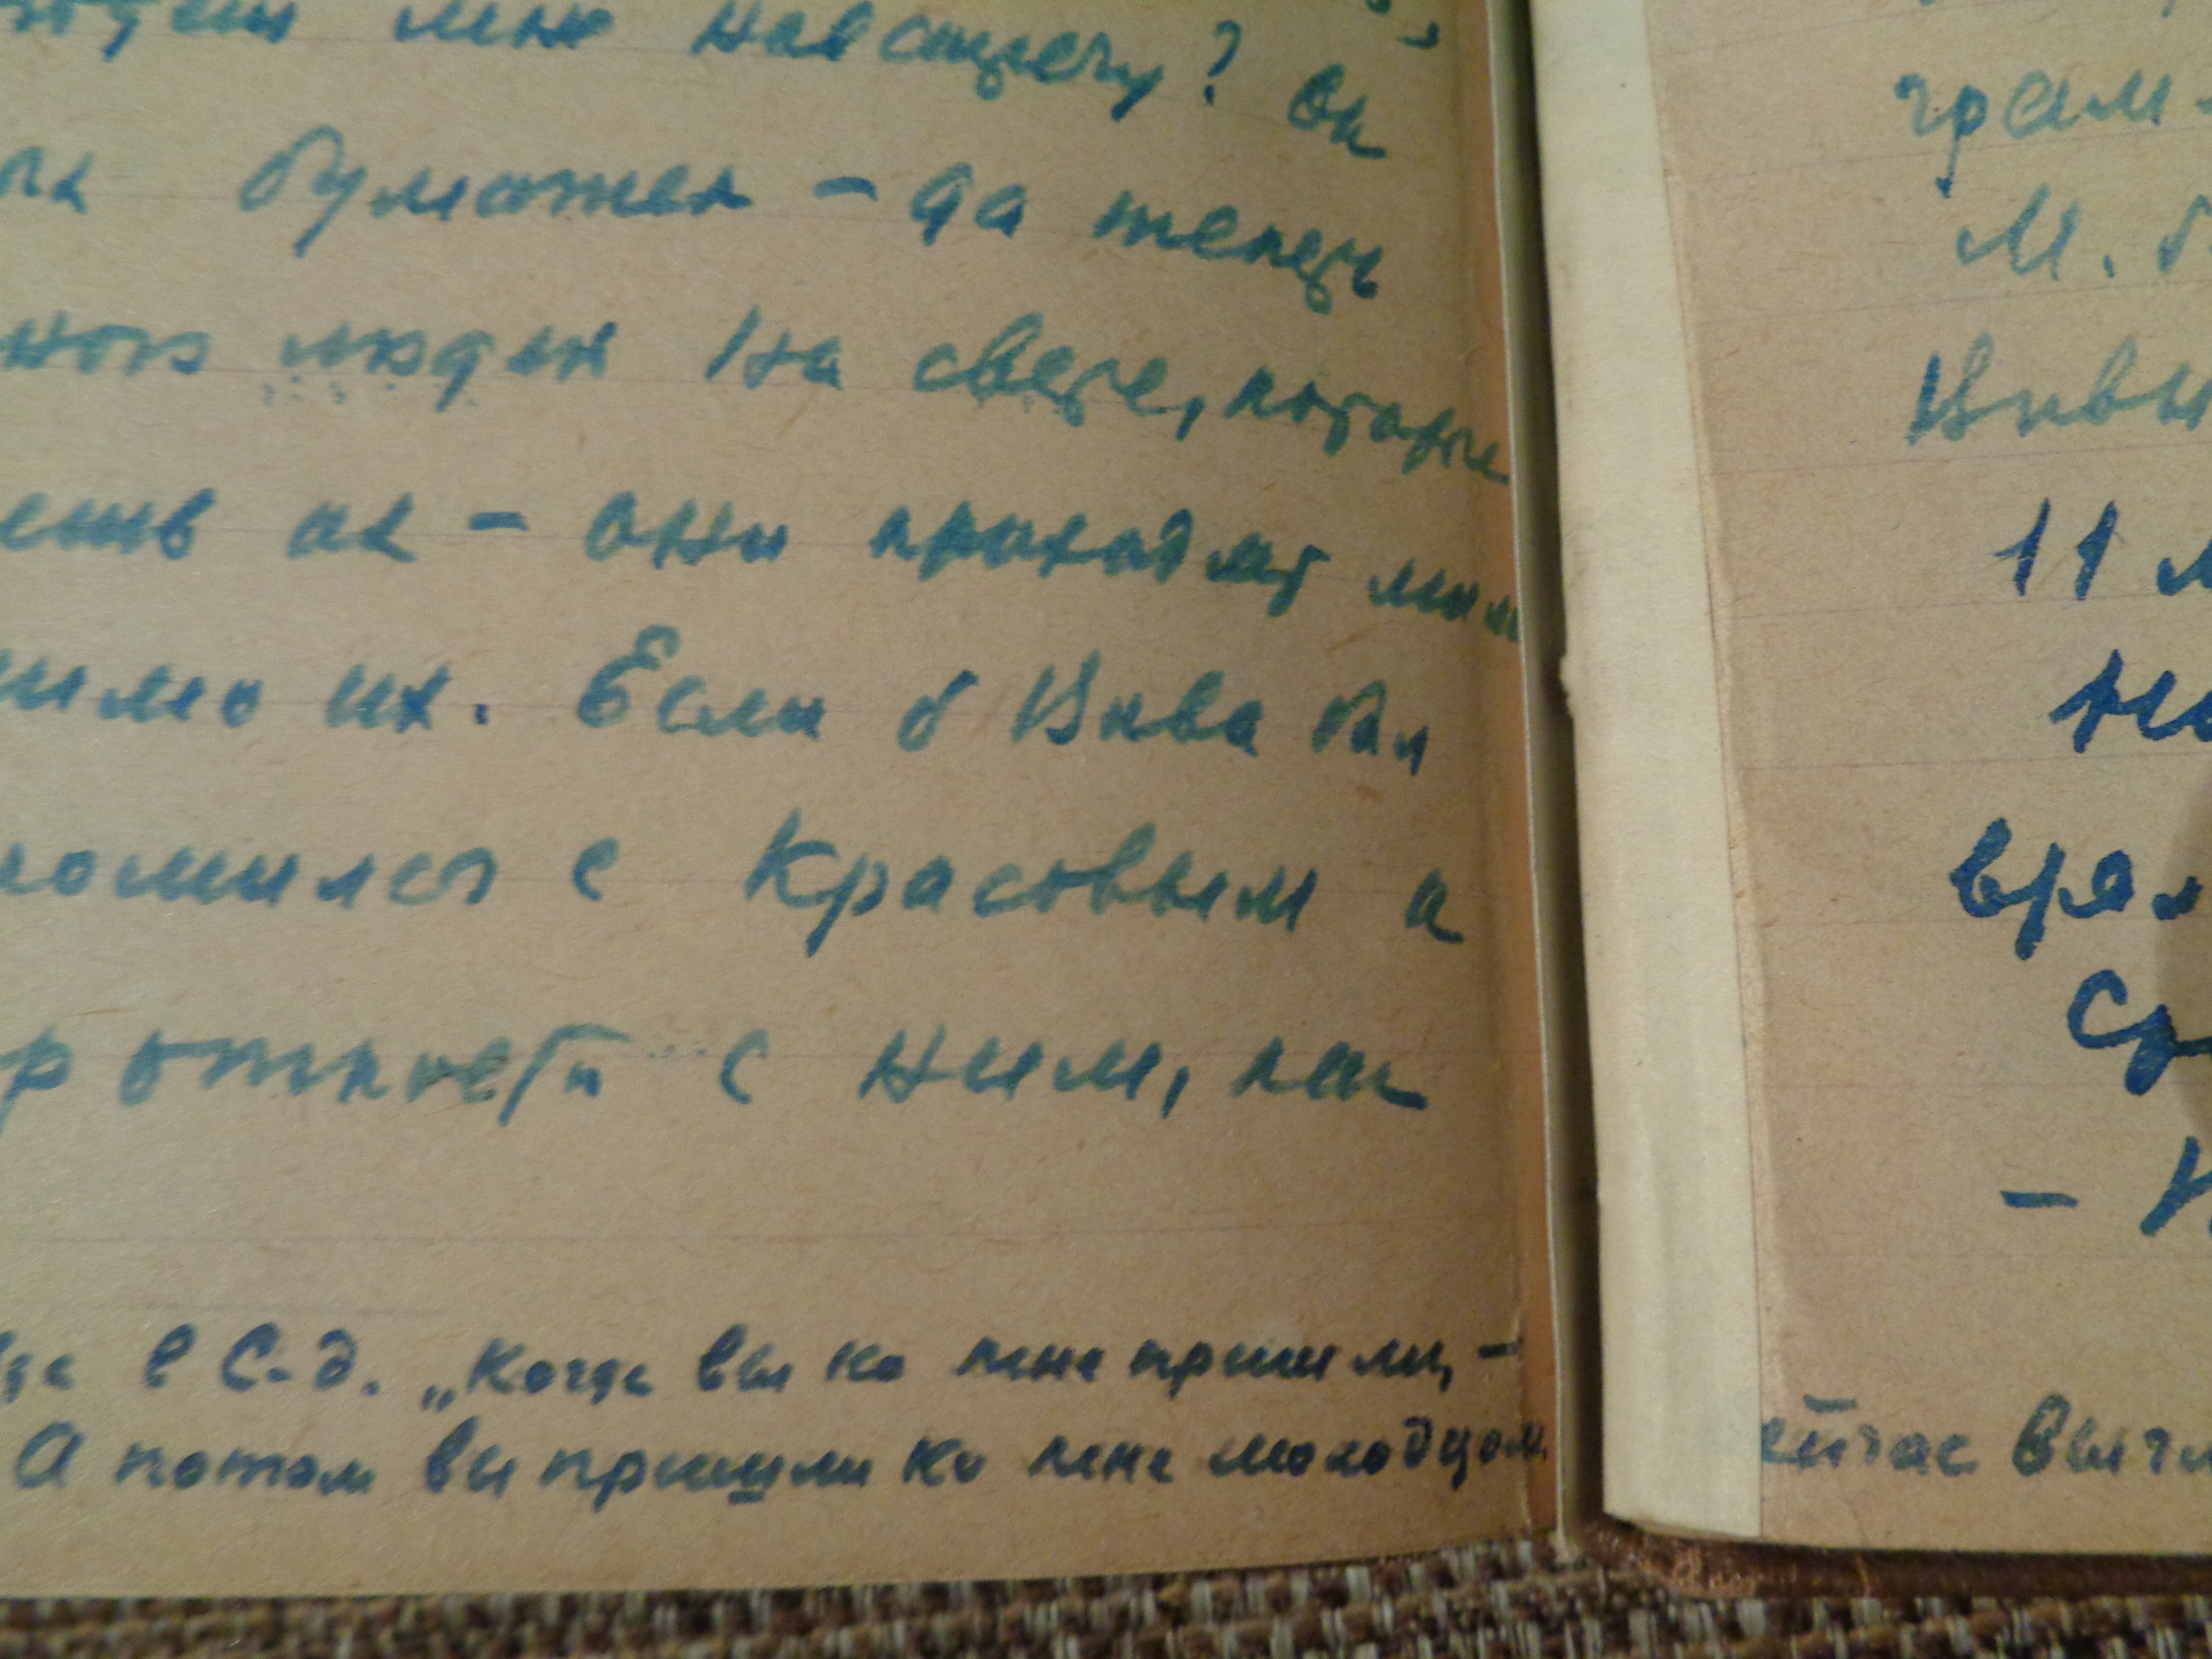 мне навстречу? Он
бумажек - да теперь
людей на свете, которые
их - они проходят мим
мимо их. Если б Вива был
комился с Красовым а
откровен с ним, как
в С.-д. „Когда вы ко мне пришли, -
А потом вы пришли ко мне молодцом.
грам
М. б
Вивы
11 м
на
врем
Ср
- К
ейчас выгл